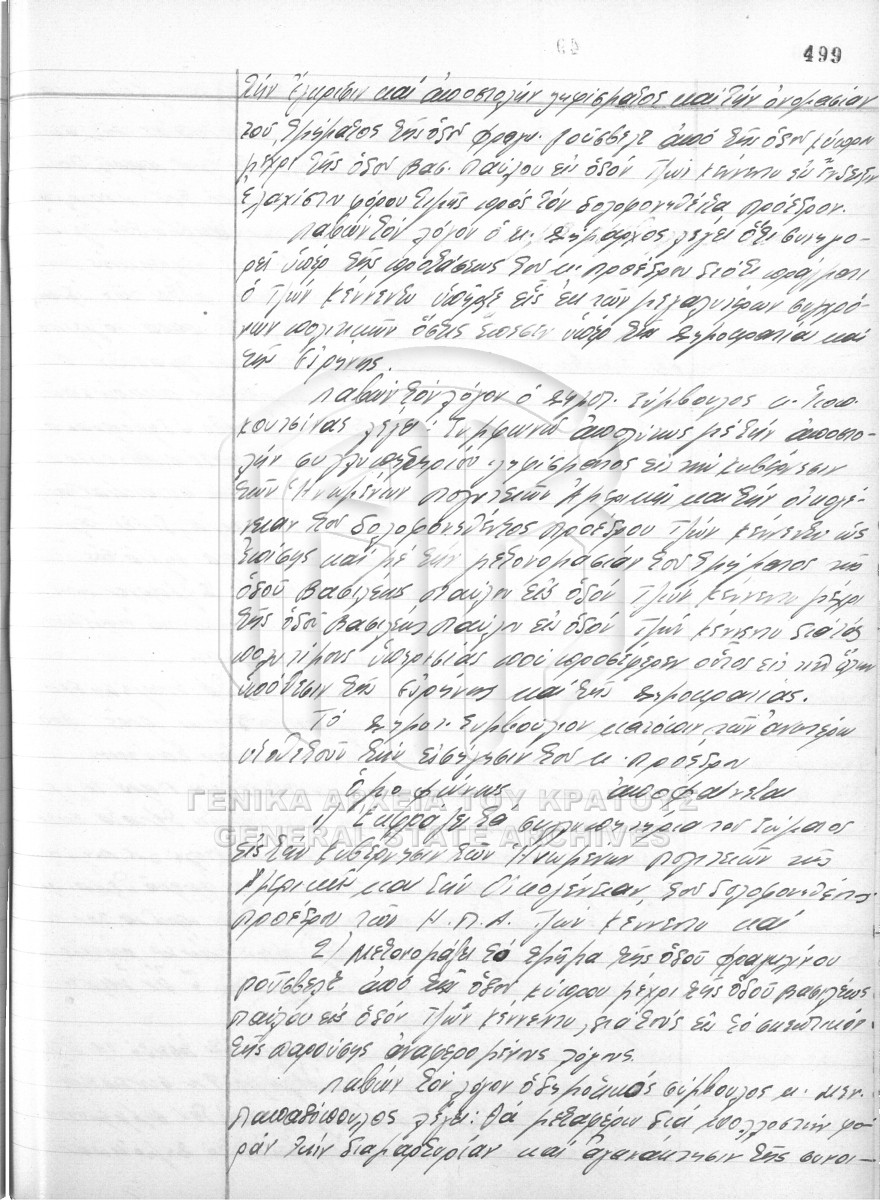 499
τὴν ἔγκρισιν καὶ ἀποστολὴν ψηφίσματος καὶ τὴν ὀνομασίαν
τοῦ τμήματος τῆς ὁδοῦ Φραγκ. Ροῦσβελτ ἀπό τῆς ὁδοῦ Κύπρου
μέχρι τῆς ὁδοῦ Βασ. Παύλου εἰς ὁδόν Τζών Κέννεντυ εἰς ἔνδειξιν
ἐλαχίστου φόρου τιμῆς πρός τόν δολοφονηθέντα Πρόεδρον.
Λαβών τόν λόγον ὁ κ. Δήμαρχος λέγει ὅτι συνηγο-
ρεῖ ὑπέρ τῆς προτάσεως τοῦ κ. Προέδρου διότι πράγματι
ὁ Τζών Κέννεντυ ὑπῆρξε εἷς ἐκ τῶν μεγαλυτέρων συγχρό-
νων πολιτικῶν ὅστις ἔπεσεν ὑπέρ τῆς Δημοκρατίας καί
τῆς Εἰρήνης.
Λαβών τόν λόγον ὁ Δημοτ. Σύμβουλος κ.
Κουτσίνας λέγει: Συμφωνῶ ἀπολύτως μέ τήν ἀποστο-
λήν συλλυπητηρίου ψηφίσματος εἰς τήν Κυβέρνησιν
τῶν Ἡνωμένων Πολιτειῶν Ἀμερικῆς καί τήν οἰκογέ-
νειαν τοῦ δολοφονηθέντος Προέδρου Τζών Κέννεντυ ὡς
ἐπίσης καί μέ τήν μετονομασίαν τοῦ τμήματος τῆς
ὁδοῦ Βασιλέως Παύλου εἰς ὁδόν Τζών Κέννεντυ μέχρι
τῆς ὁδοῦ Βασιλέως Παύλου εἰς ὁδόν Τζών Κέννεντυ διά τάς
πολυτίμους ὑπηρεσίας πού προσέφερεν οὗτος εἰς τήν
ὑπόθεσιν τῆς Εἰρήνης καί τῆς Δημοκρατίας.
Τό Δημοτ. Συμβούλιον κατόπιν τῶν ἀνωτέρω
υἱοθετοῦν τήν εἰσήγησιν τοῦ κ. Προέδρου
Ὁμοφώνως ἀποφαίνεται
ΓΕΝΙΚΑ ΑΡΧΕΙΑ ΤΟΥ ΚΡΑΤΟΥΣ
1) Ἐκφράζει τά συλλυπητήρια τοῦ Σώματος
GENERAL STATE ARCHIVES
εἰς τήν Κυβέρνησιν τῶν Ἡνωμένων Πολιτειῶν τῆς
Ἀμερικῆς καί τήν Οἰκογένειαν τοῦ δολοφονηθέντος
Προέδρου τῶν Η.Π.Α. Τζών Κέννεντυ καί
2) Μετονομάζει τό τμῆμα τῆς ὁδοῦ Φραγκλίνου
Ροῦσβελτ ἀπό τῆς ὁδοῦ Κύπρου μέχρι τῆς ὁδοῦ Βασιλέως
Παύλου εἰς ὁδόν Τζών Κέννεντυ, διά τούς εἰς τό σκεπτικόν
τῆς παρούσης ἀναφερομένους λόγους.
Λαβών τόν λόγον ὁ δημοτικός σύμβουλος κ. Μεν.
Παπαδόπουλος λέγει: Θά μεταφέρω διά πολλοστήν φο-
ράν τήν διαμαρτυρίαν καί ἀγανάκτησιν τῆς συνοι-